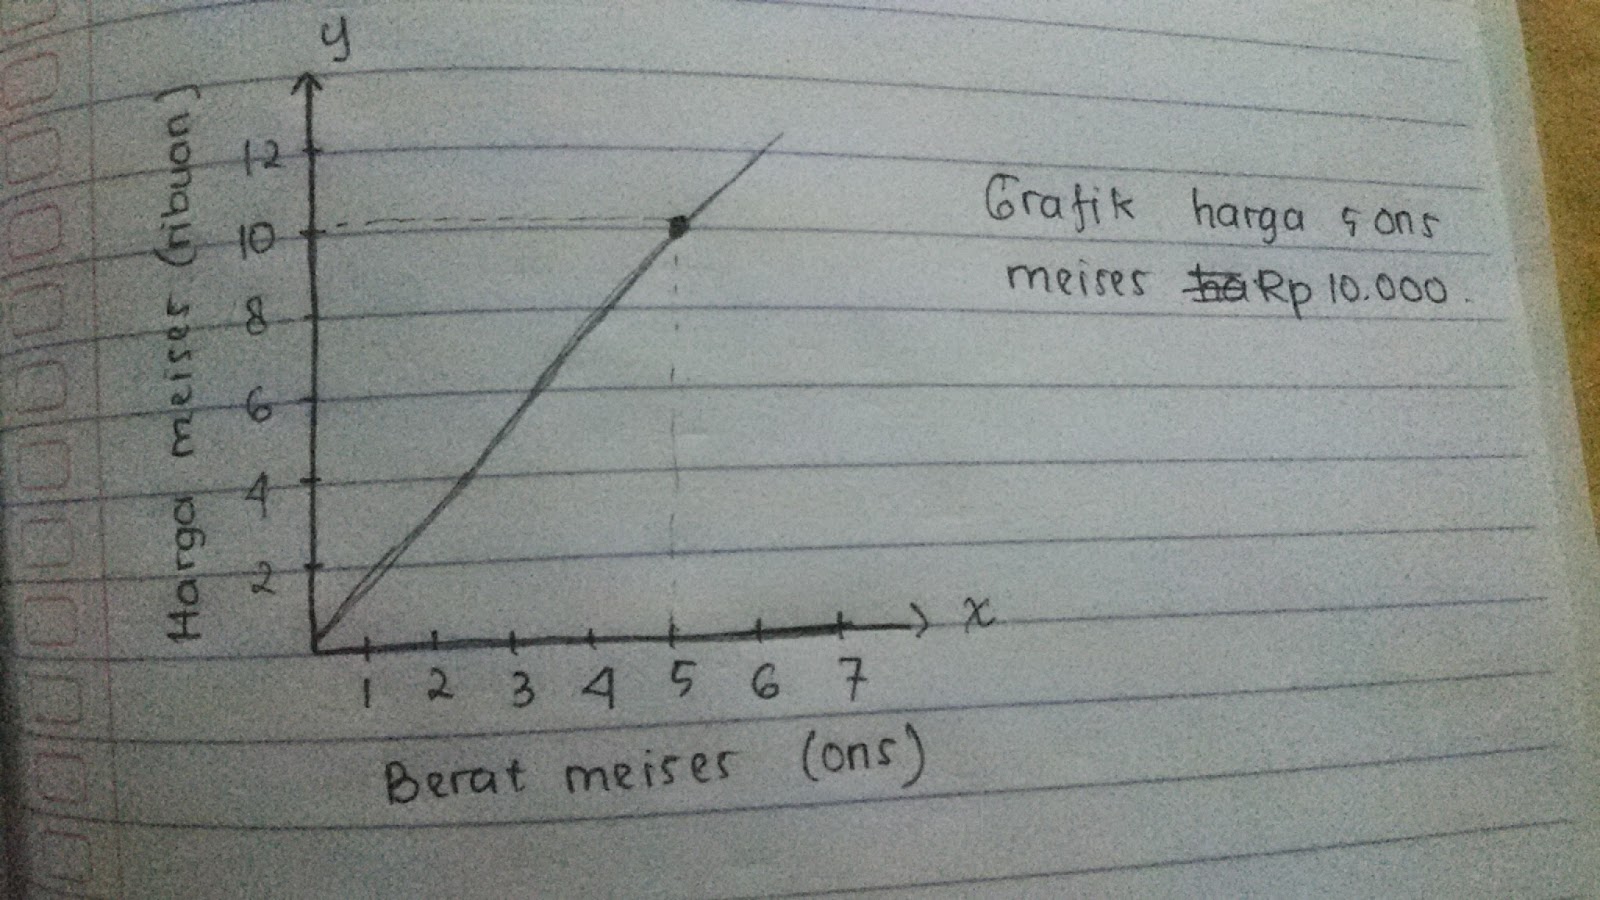 y
Harga meises (ribuan)
12
10
8
6
4
2
1 2 3 4 5 6 7
x
Berat meises (ons)
Grafik harga 5 ons
meises Rp 10.000.